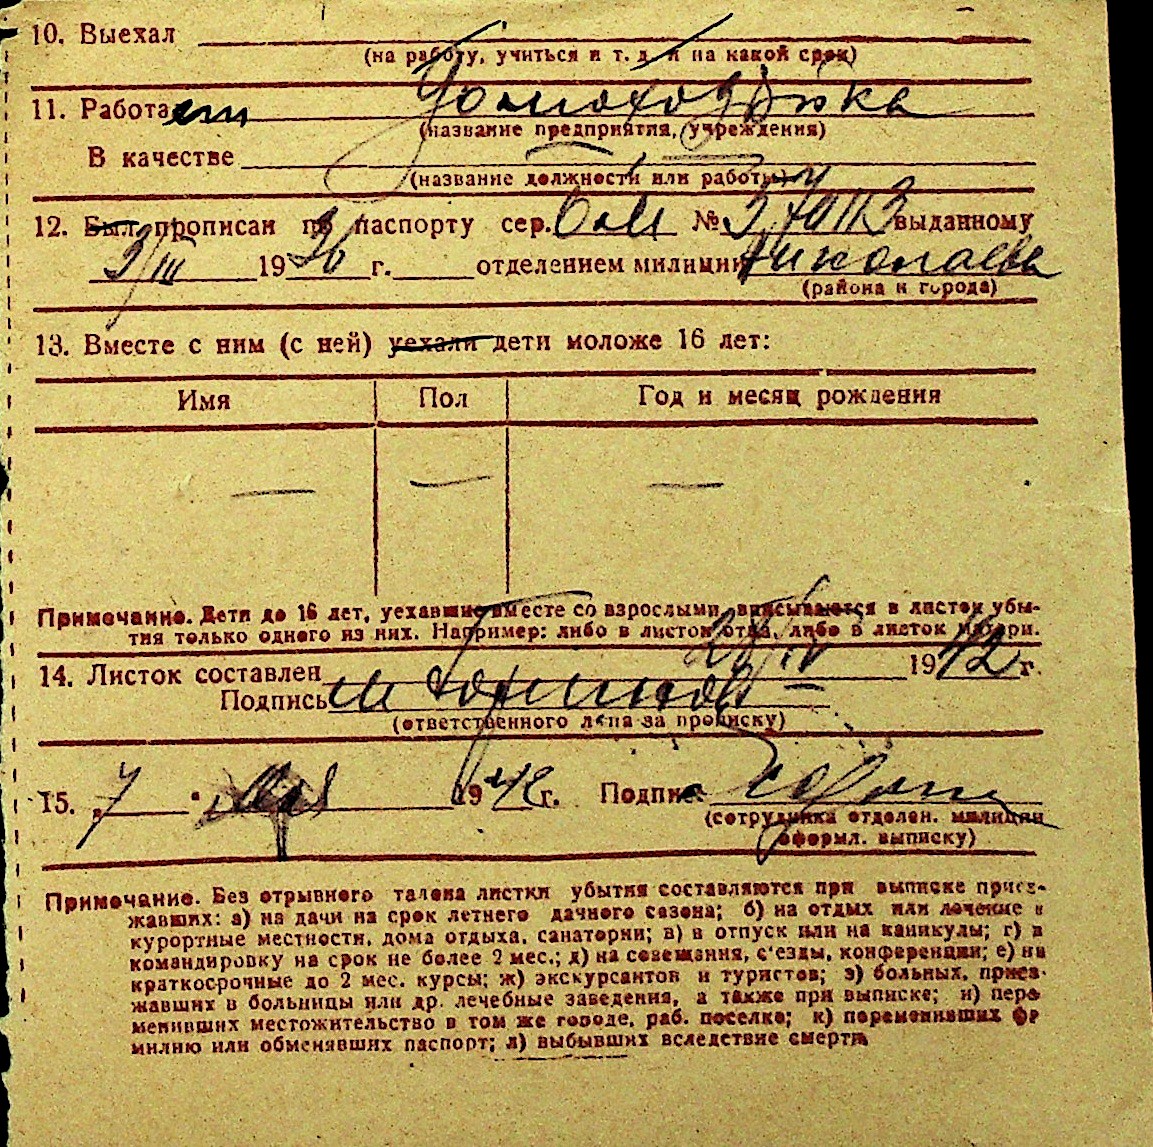 10. Выехал
(на работу, учиться и т. д. и на какой срок)
11. Работает Домохозяйка
(название предприятия, учреждения)
В качестве
(название должности или работы)
12. Был прописан по паспорту сер. № выданному
3/III 1936 г. отделением милиции Николаева
(района и города)
13. Вместе с ним (с ней) уехали дети моложе 16 лет:
Имя Пол Год и месяц рождения
— — —
Примечание. Дети до 16 лет, уехавшие вместе со взрослыми, вписываются в листок убы-
тия только одного из них. Например: либо в листок отца, либо в листок матери.
14. Листок составлен 1942 г.
Подпись
(ответственного лица за прописку)
15. „7" мая 1942 г. Подпись
(сотрудника отделен. милиции
оформл. выписку)
Примечание. Без отрывного талона листки убытия составляются при выписке приез-
жавших: а) на дачи на срок летнего дачного сезона; б) на отдых или лечение в
курортные местности, дома отдыха, санатории; в) в отпуск или на каникулы; г) в
командировку на срок не более 2 мес.; д) на совещания, с'езды, конференции; е) на
краткосрочные до 2 мес. курсы; ж) экскурсантов и туристов; з) больных, приез-
жавших в больницы или др. лечебные заведения, а также при выписке; и) пере
менивших местожительство в том же городе, раб. поселке; к) переменивших фа
милию или обменявших паспорт; л) выбывших вследствие смерти